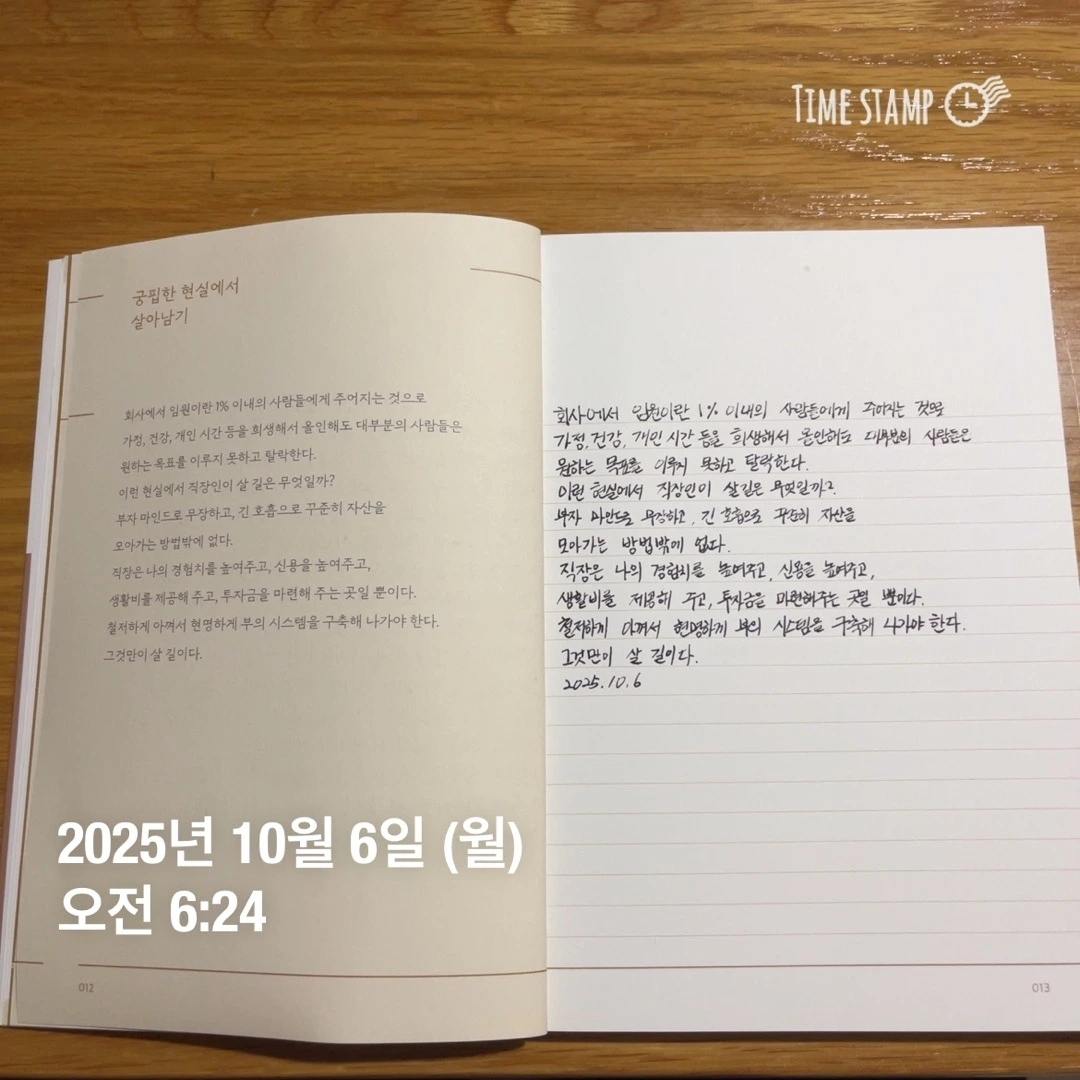 TIME STAMP
궁핍한 현실에서
살아남기
회사에서 임원이란 1% 이내의 사람들에게 주어지는 것으로
가정, 건강, 개인 시간 등을 희생해서 올인해도 대부분의 사람들은
원하는 목표를 이루지 못하고 탈락한다.
이런 현실에서 직장인이 살 길은 무엇일까?
부자 마인드로 무장하고, 긴 호흡으로 꾸준히 자산을
모아가는 방법밖에 없다.
직장은 나의 경험치를 높여주고, 신용을 높여주고,
생활비를 제공해 주고, 투자금을 마련해 주는 곳일 뿐이다.
철저하게 아껴서 현명하게 부의 시스템을 구축해 나가야 한다.
그것만이 살 길이다.
012
회사에서 임원이란 1% 이내의 사람들에게 주어지는 것으로
가정, 건강, 개인 시간 등을 희생해서 올인해도 대부분의 사람들은
원하는 목표를 이루지 못하고 탈락한다.
이런 현실에서 직장인이 살 길은 무엇일까?
부자 마인드로 무장하고, 긴 호흡으로 꾸준히 자산을
모아가는 방법밖에 없다.
직장은 나의 경험치를 높여주고, 신용을 높여주고,
생활비를 제공해 주고, 투자금을 마련해주는 곳일 뿐이다.
철저하게 아껴서 현명하게 부의 시스템을 구축해 나가야 한다.
그것만이 살 길이다.
2025.10.6
013
2025년 10월 6일 (월)
오전 6:24